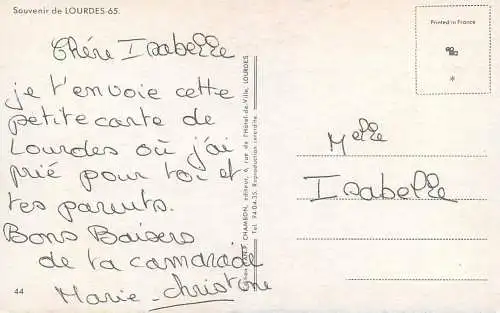 Souvenir de LOURDES-65.
Chére Isabelle
je t'envoie cette
petite carte de
Lourdes où j'ai
prié pour toi et
tes parents.
Bons Baisers
de ta camarade
Marie-christine
44
CHAMBON, éditeur, 6, rue de l'Hôtel-de-Ville, LOURDES
Tél. 94.04.35. Reproduction interdite.
Printed in France
*
Melle
Isabelle